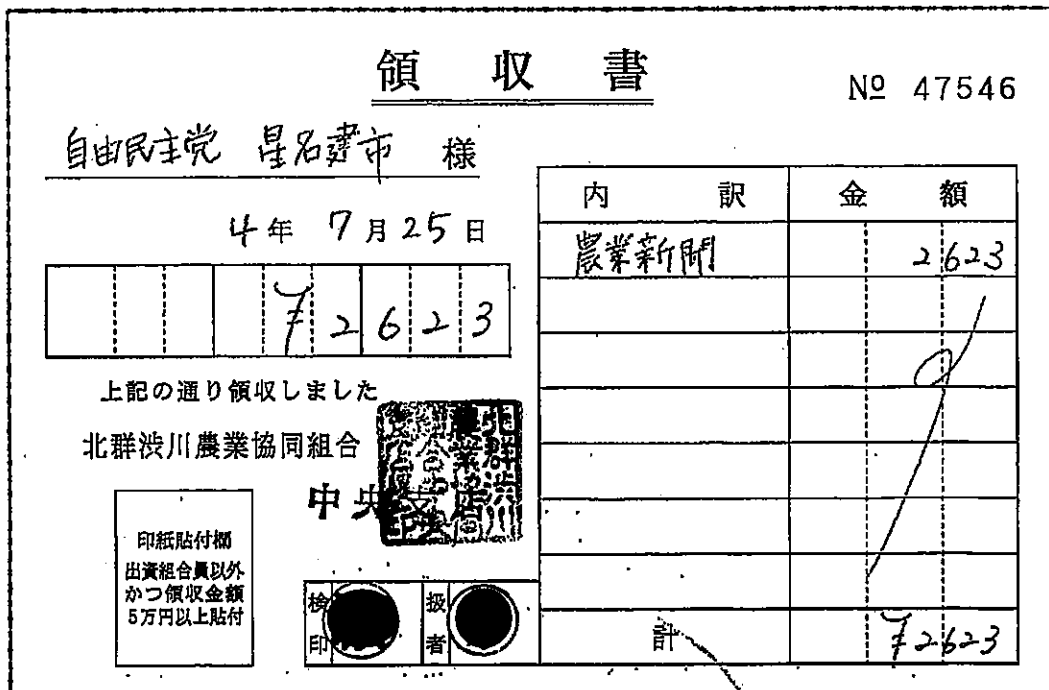 領収書
№ 47546
自由民主党 星名建市 様
4年 7月25日
¥2623
上記の通り領収しました
北群渋川農業協同組合
中央支店
印紙貼付欄
出資組合員以外
かつ領収金額
5万円以上貼付
検印
扱者
内訳 金額
農業新聞 2623
計 ¥2623